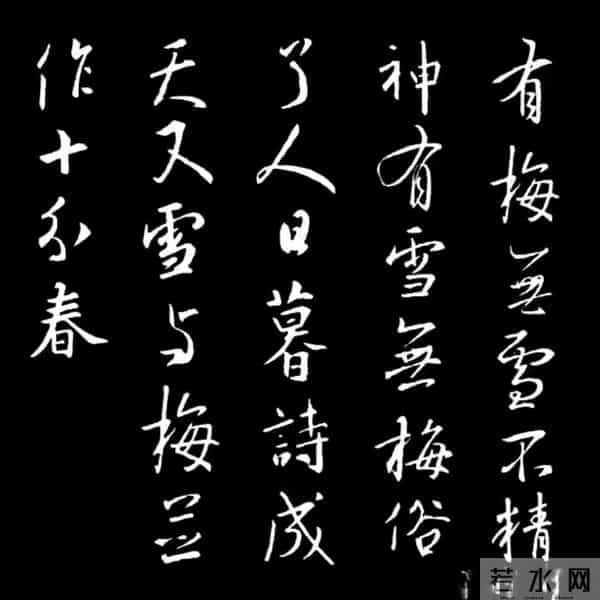 有梅無雪不精
神有雪無梅俗
了人日暮詩成
天又雪与梅並
作十分春
若水网